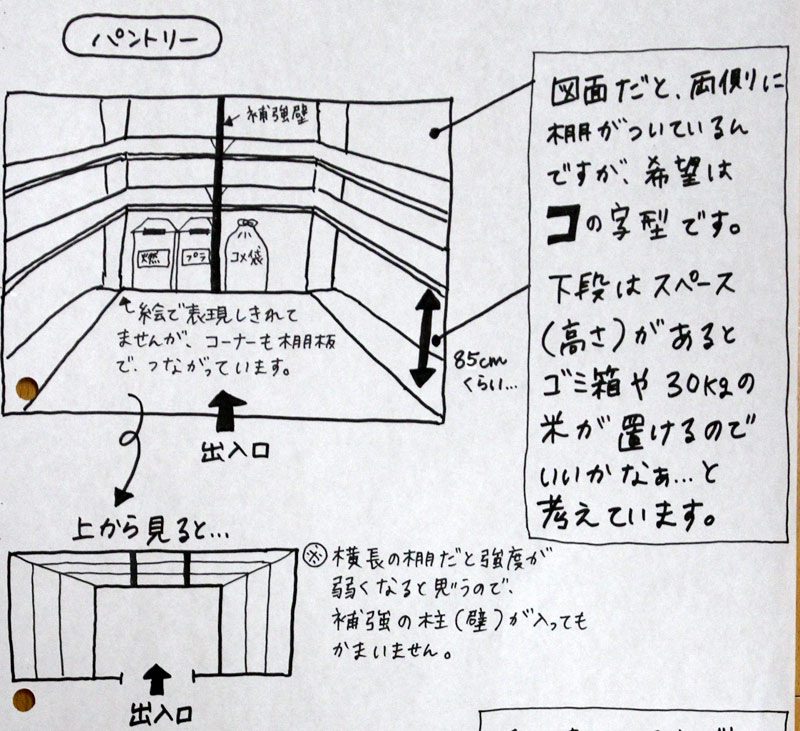 パントリー
補強壁
燃
プラ
コメ袋
絵で表現しきれて
ませんが、コーナーも棚板
で、つながっています。
85cm
くらい…
出入口
図面だと、両側に
棚がついているん
ですが、希望は
コの字型です。
下段はスペース
(高さ)があると
ゴミ箱や30kgの
米が置けるので
いいかなぁ…と
考えています。
上から見ると…
出入口
※横長の棚だと強度が
弱くなると思うので、
補強の柱(壁)が入っても
かまいません。